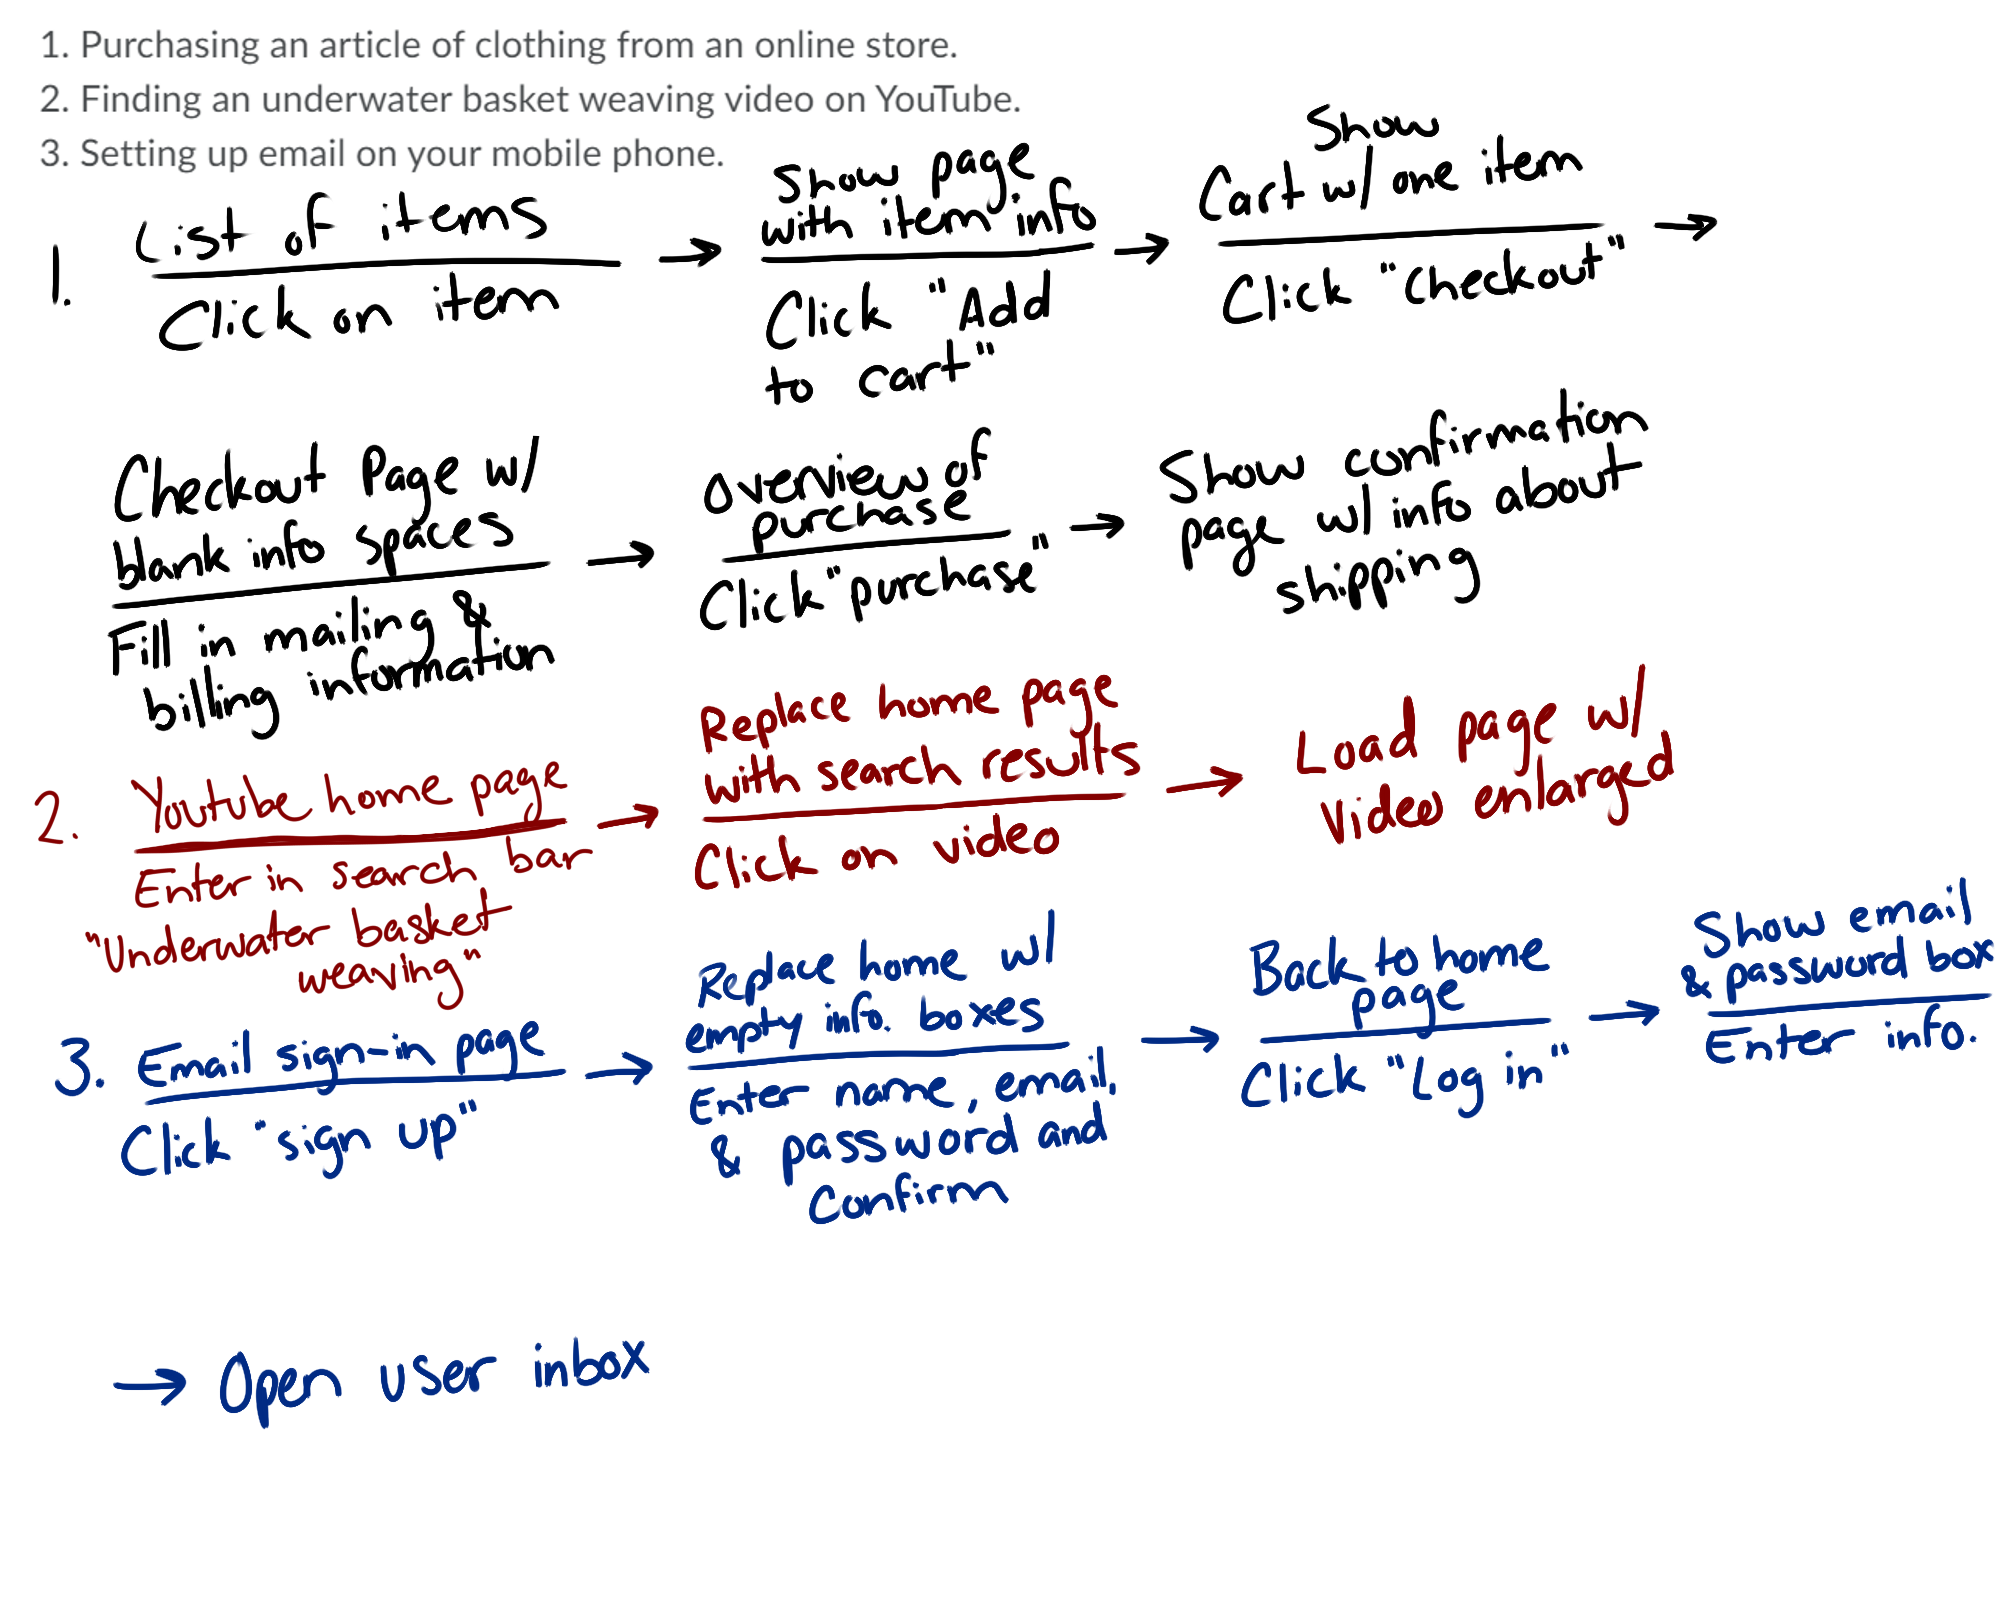 1. Purchasing an article of clothing from an online store.
2. Finding an underwater basket weaving video on YouTube.
3. Setting up email on your mobile phone.
1.
List of items
Click on item
→
Show page
with item info
Click "Add
to cart"
→
Show
Cart w/ one item
Click "Checkout"
→
Checkout Page w/
blank info spaces
Fill in mailing &
billing information
→
Overview of
purchase
Click "purchase"
→
Show confirmation
page w/ info about
shipping
2.
Youtube home page
Enter in search bar
"Underwater basket
weaving"
→
Replace home page
with search results
Click on video
→
Load page w/
Video enlarged
3.
Email sign-in page
Click "sign up"
→
Replace home w/
empty info. boxes
Enter name, email,
& password and
Confirm
→
Back to home
page
Click "Log in"
→
Show email
& password box
Enter info.
→ Open user inbox